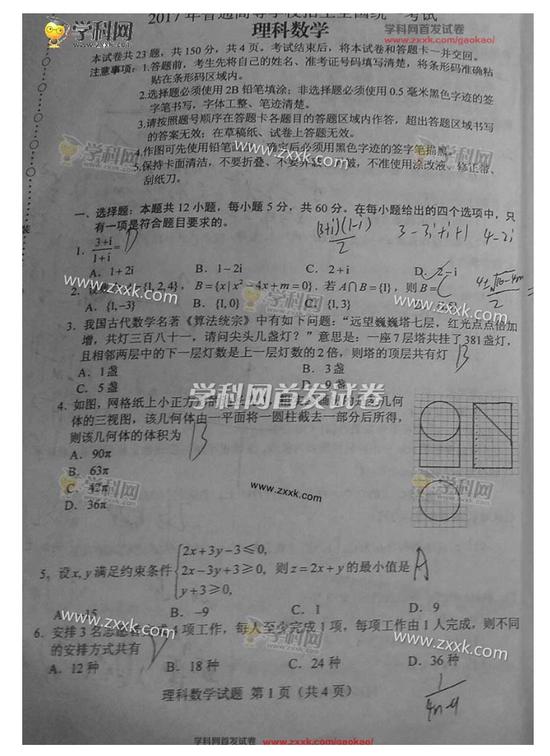 学科网
www.zxxk.com
学科网首发试卷
www.zxxk.com/gaokao/
2017年普通高等学校招生全国统一考试
理科数学
本试卷共23题,共150分,共4页。考试结束后,将本试卷和答题卡一并交回。
注意事项:1.答题前,考生先将自己的姓名、准考证号码填写清楚,将条形码准确粘
贴在条形码区域内。
2.选择题必须使用2B铅笔填涂;非选择题必须使用0.5毫米黑色字迹的签
字笔书写,字体工整、笔迹清楚。
3.请按照题号顺序在答题卡各题目的答题区域内作答,超出答题区域书写
的答案无效;在草稿纸、试卷上答题无效。
4.作图可先使用铅笔 确定后必须用黑色字迹的签字笔描黑。
5.保持卡面清洁,不要折叠、不要弄 破,不准使用涂改液、修正带、
刮纸刀。
一、选择题:本题共12小题,每小题5分,共60分。在每小题给出的四个选项中,只
有一项是符合题目要求的。
(3+i)(1-i)/2 3-3i+i+1 4-2i
1. (3+i)/(1+i)= D
A.1+2i B.1-2i C.2+i D.2-i
2. 1,2,4},B={x|x²-4x+m=0}.若A∩B={1},则B= C
A.{1,-3} B.{1,0} C.{1,3} D.{1,5}
3. 我国古代数学名著《算法统宗》中有如下问题:“远望巍巍塔七层,红光点点倍加
增,共灯三百八十一,请问尖头几盏灯?”意思是:一座7层塔共挂了381盏灯,
且相邻两层中的下一层灯数是上一层灯数的2倍,则塔的顶层共有灯 B
A.1盏 B.3盏
C.5盏 D.9盏
学科网首发试卷
4. 如图,网格纸上小正方 几何
体的三视图,该几何体由一平面将一圆柱截去一部分后所得,
则该几何体的体积为 B
A.90π
B.63π
C.42π
D.36π
www.zxxk.com
5. 设x,y满足约束条件{2x+3y-3≤0, 2x-3y+3≥0, y+3≥0, 则z=2x+y的最小值是 A
A.-15 B.-9 C.1 D.9
6. 安排3名志愿者 4项工作,每人至少完成1项,每项工作由1人完成,则不同
的安排方式共有 D
A.12种 B.18种 C.24种 D.36种
理科数学试题 第1页(共4页)
学科网首发试卷
www.zxxk.com/gaokao/